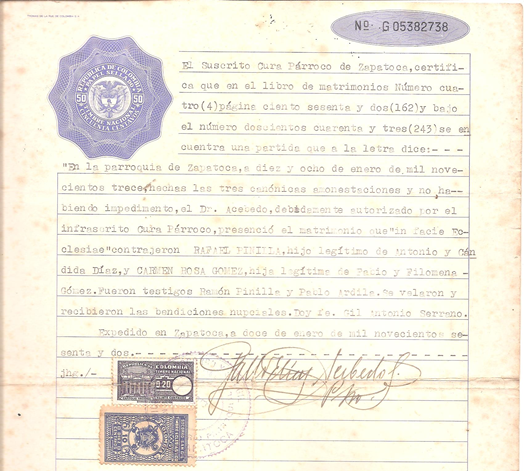 Nº G 05382738
REPUBLICA DE COLOMBIA
PAPEL SELLADO
50 50
TIMBRE NACIONAL
CINCUENTA CENTAVOS
El Suscrito Cura Párroco de Zapatoca,certifi-
ca que en el libro de matrimonios Número cua-
tro(4)página ciento sesenta y dos(162)y bajo
el número doscientos cuarenta y tres(243)se en-
cuentra una partida que a la letra dice:- - -
"En la parroquia de Zapatoca,a diez y ocho de enero de mil nove-
cientos trece,hechas las tres canónicas amonestaciones y no ha--
biendo impedimento,el Dr. Acebedo,debidamente autorizado por el
infrascrito Cura Párroco,presenció el matrimonio que"in facie Ecc-
clesiae"contrajeron RAFAEL PINILLA,hijo legítimo de Antonio y Cán
dida Díaz,y CARMEN ROSA GOMEZ,hija legítima de Fabio y Filomena -
Gómez.Fueron testigos Ramón Pinilla y Pablo Ardila.Se velaron y
recibieron las bendiciones nupciales.Doy fe. Gil Antonio Serrano.
Expedido en Zapatoca,a doce de enero de mil novecientos se-
senta y dos.-
jhg./-
COLOMBIA
TIMBRE NACIONAL
0.20